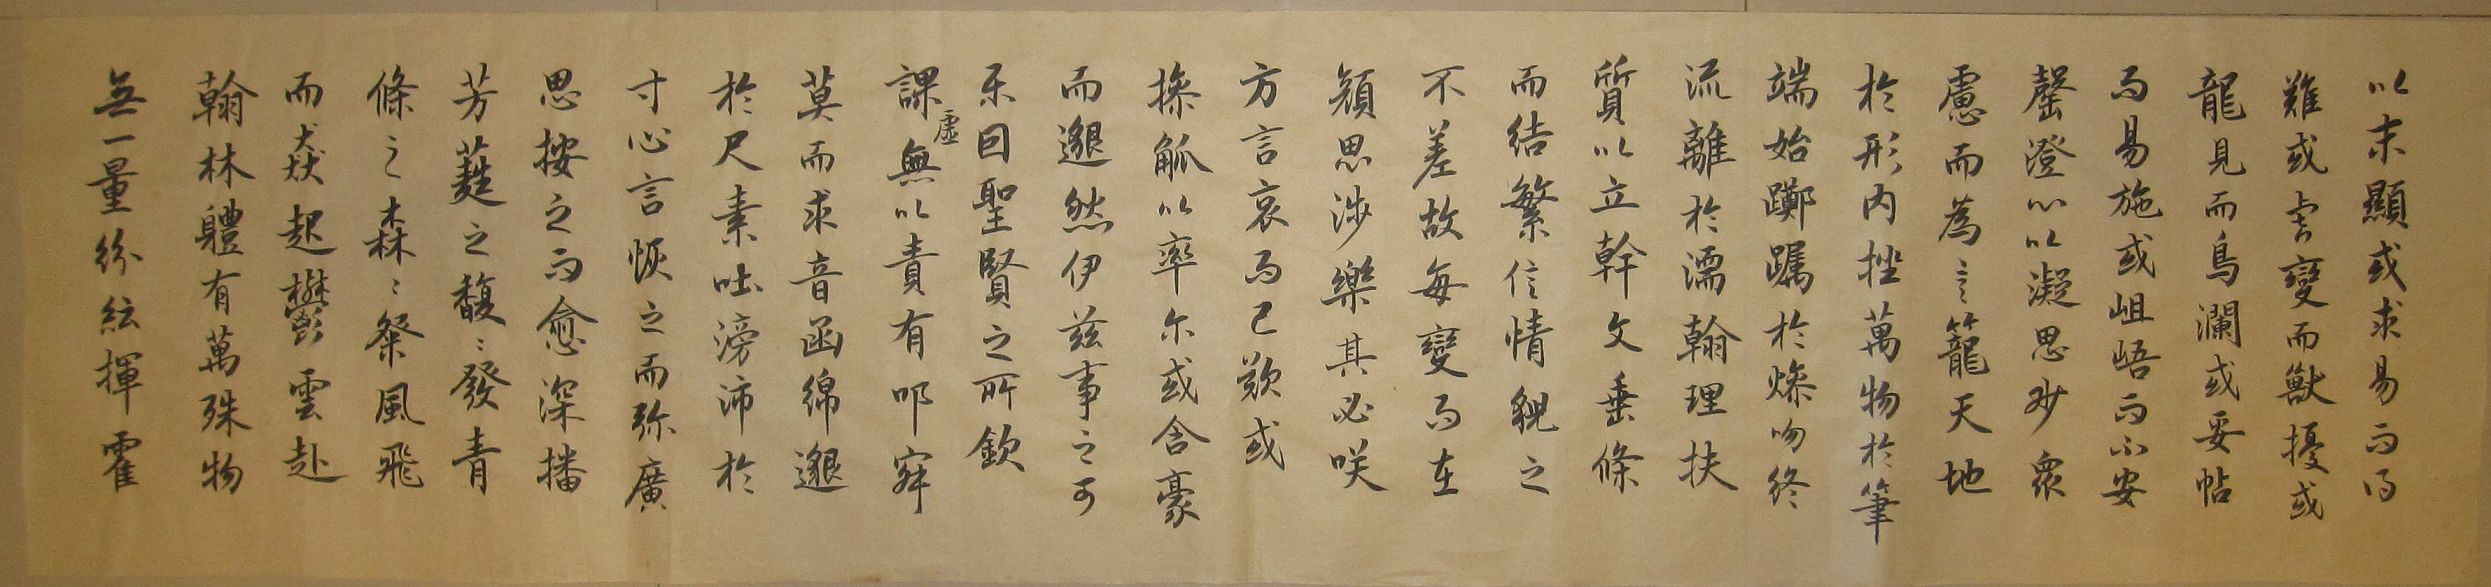 以末顯或求易而得
難或虎變而獸擾或
龍見而鳥瀾或妥帖
而易施或岨峿而不安
罄澄心以凝思眇衆
慮而為言籠天地
於形內挫萬物於筆
端始躑躅於燥吻終
流離於濡翰理扶
質以立幹文垂條
而結繁信情貌之
不差故每變而在
顏思涉樂其必咲
方言哀而已歎或
操觚以率尔或含豪
而邈然伊茲事之可
樂固聖賢之所欽
課虛無以責有叩寂
莫而求音函綿邈
於尺素吐滂沛於
寸心言恢之而弥廣
思按之而愈深播
芳蕤之馥〻發青
條之森〻粲風飛
而猋起鬱雲起
翰林體有萬殊物
無一量紛紜揮霍